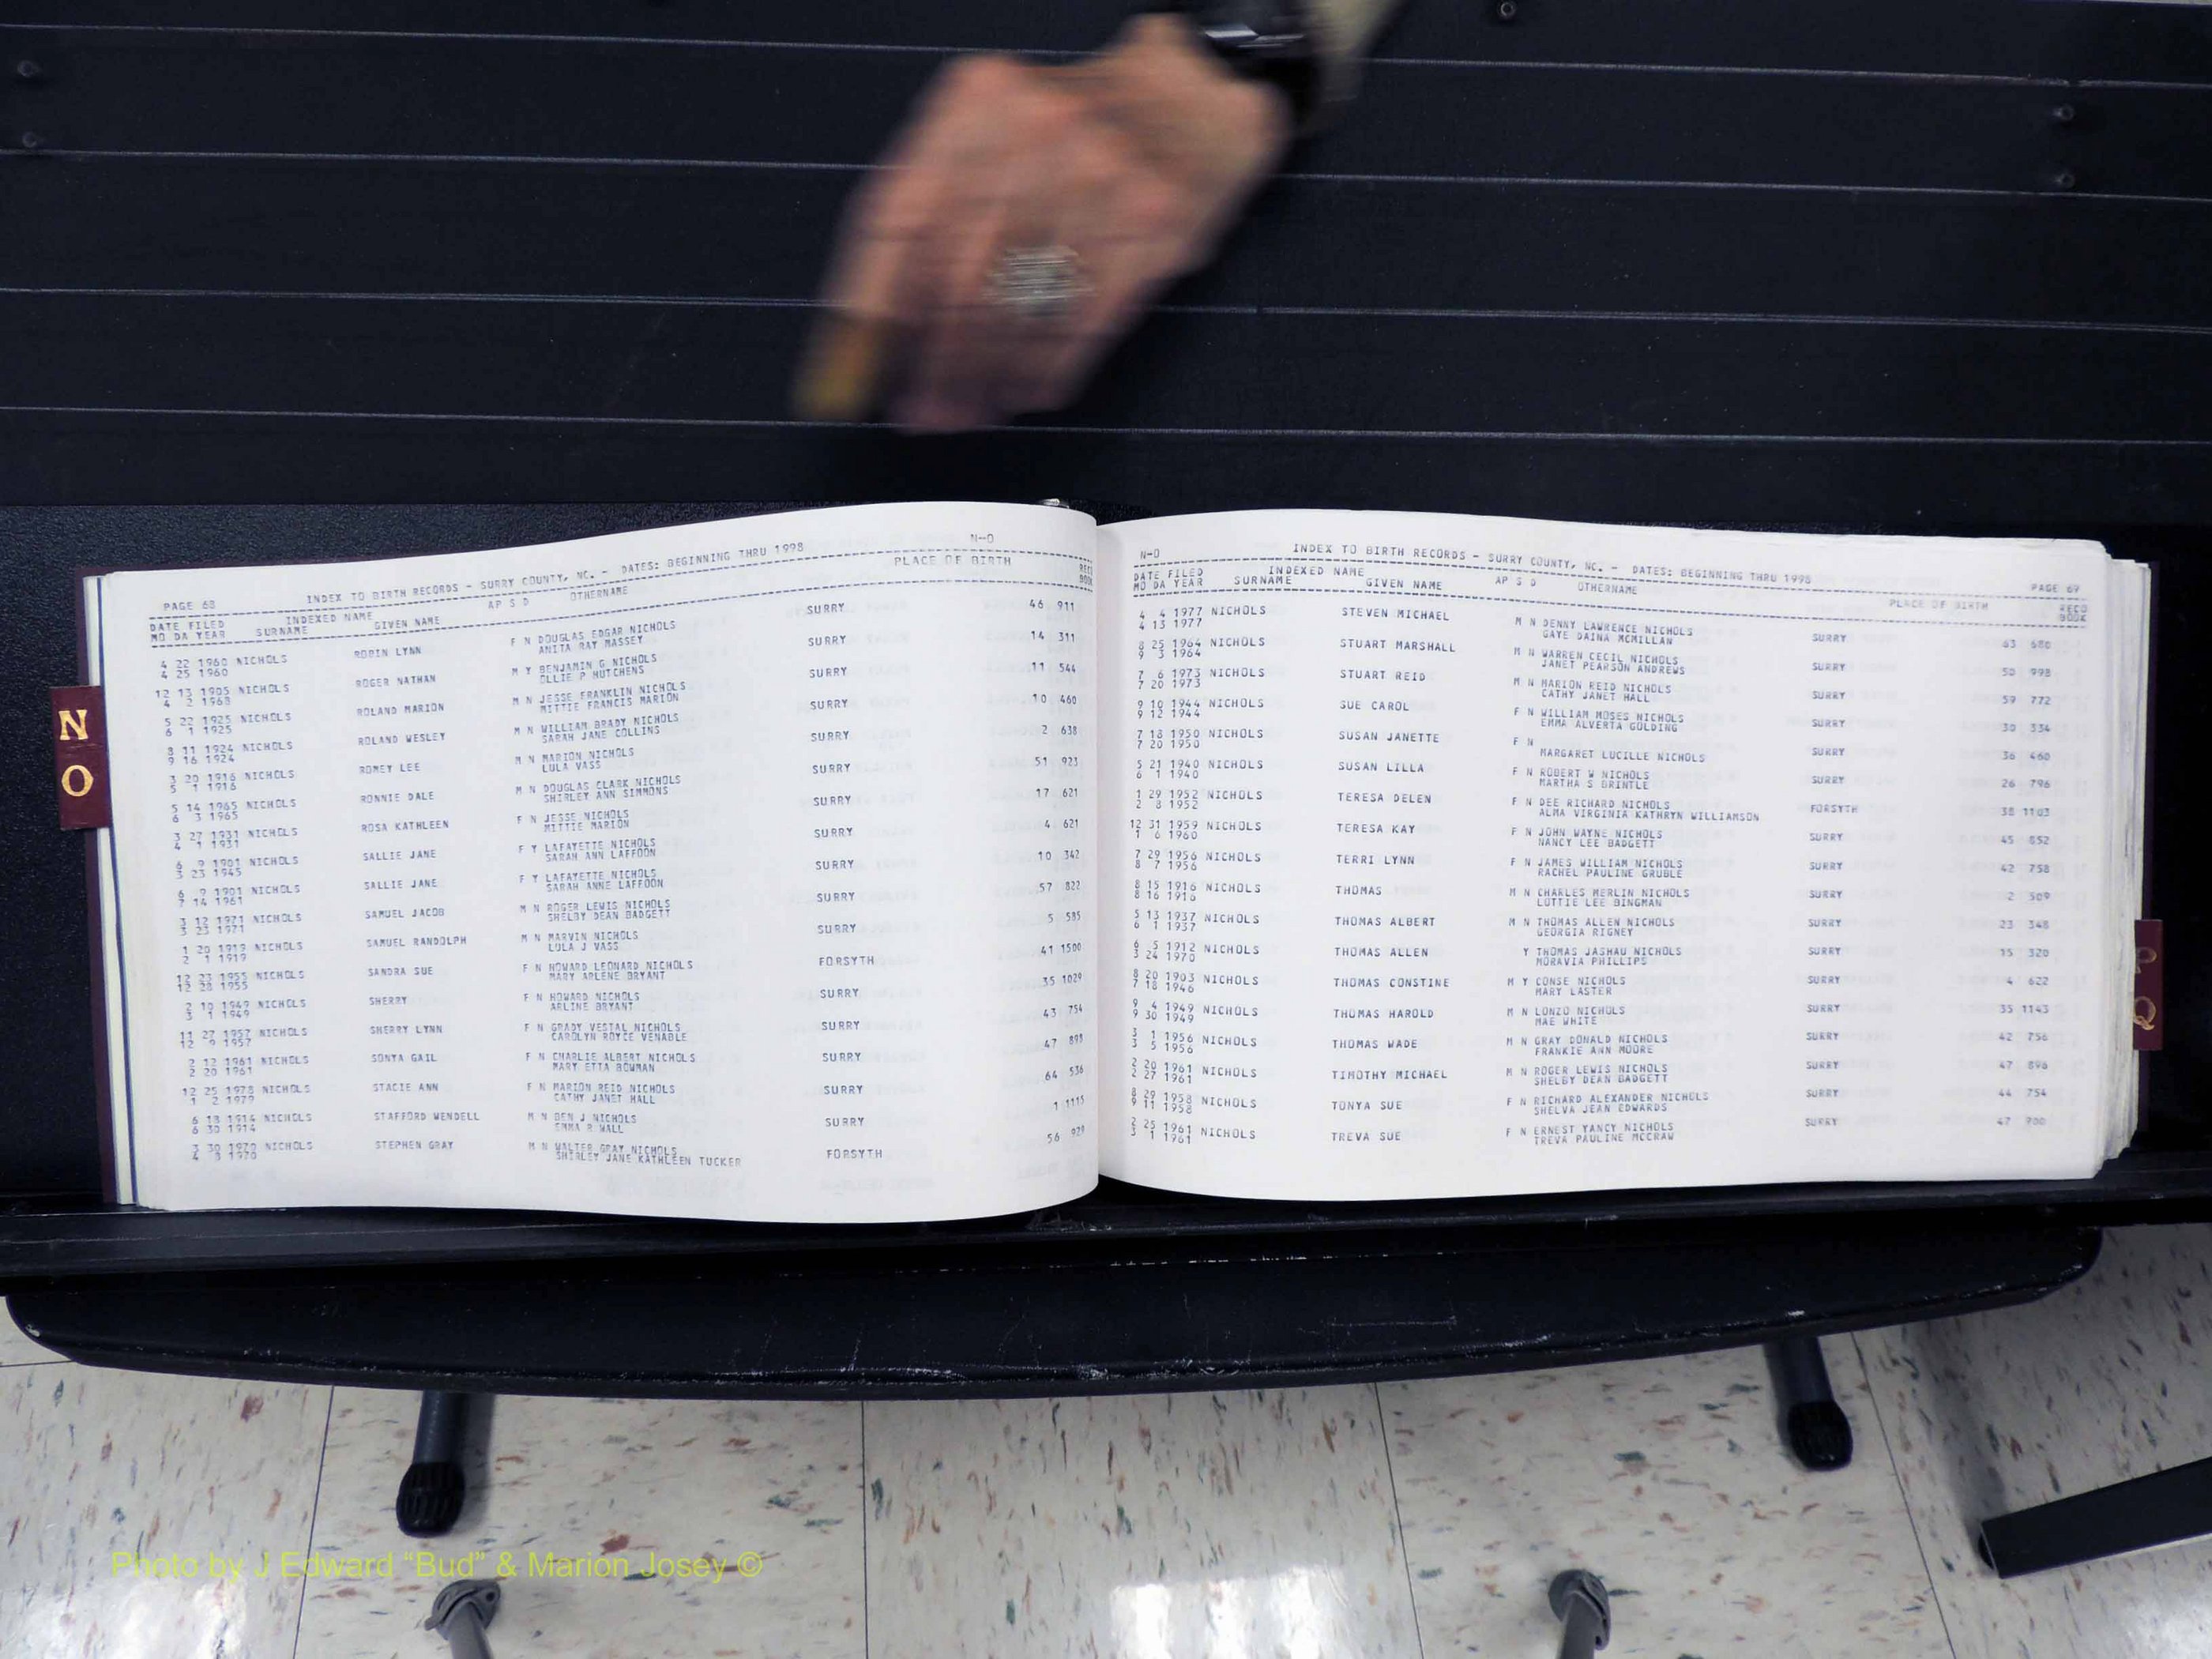 N
O
PAGE 68 INDEX TO BIRTH RECORDS - SURRY COUNTY, NC. - DATES: BEGINNING THRU 1998 N-O
DATE FILED INDEXED NAME AP S D OTHERNAME PLACE OF BIRTH RECO
MO DA YEAR SURNAME GIVEN NAME BOOK
4 22 1960 NICHOLS ROBIN LYNN F N DOUGLAS EDGAR NICHOLS SURRY 46 911
4 25 1960 ANITA RAY MASSEY
12 13 1905 NICHOLS ROGER NATHAN M Y BENJAMIN G NICHOLS SURRY 14 311
4 2 1968 OLLIE P HUTCHENS
5 22 1925 NICHOLS ROLAND MARION M N JESSE FRANKLIN NICHOLS SURRY 11 544
6 1 1925 MITTIE FRANCIS MARION
8 11 1924 NICHOLS ROLAND WESLEY M N WILLIAM BRADY NICHOLS SURRY 10 460
9 16 1924 SARAH JANE COLLINS
3 20 1916 NICHOLS ROMEY LEE M N MARION NICHOLS SURRY 2 638
5 1 1916 LULA VASS
5 14 1965 NICHOLS RONNIE DALE M N DOUGLAS CLARK NICHOLS SURRY 51 923
6 3 1965 SHIRLEY ANN SIMMONS
3 27 1931 NICHOLS ROSA KATHLEEN F N JESSE NICHOLS SURRY 17 621
4 1 1931 MITTIE MARION
6 9 1901 NICHOLS SALLIE JANE F Y LAFAYETTE NICHOLS SURRY 4 621
3 23 1945 SARAH ANN LAFFOON
6 9 1901 NICHOLS SALLIE JANE F Y LAFAYETTE NICHOLS SURRY 10 342
7 14 1961 SARAH ANNE LAFFOON
3 12 1971 NICHOLS SAMUEL JACOB M N ROGER LEWIS NICHOLS SURRY 57 822
3 23 1971 SHELBY DEAN BADGETT
1 20 1919 NICHOLS SAMUEL RANDOLPH M N MARVIN NICHOLS SURRY 5 585
2 1 1919 LULA J VASS
12 23 1955 NICHOLS SANDRA SUE F N HOWARD LEONARD NICHOLS FORSYTH 41 1500
12 28 1955 MARY ARLENE BRYANT
2 10 1949 NICHOLS SHERRY F N HOWARD NICHOLS SURRY 35 1029
3 1 1949 ARLINE BRYANT
11 27 1957 NICHOLS SHERRY LYNN F N GRADY VESTAL NICHOLS SURRY 43 754
12 9 1957 CAROLYN ROYCE VENABLE
2 12 1961 NICHOLS SONYA GAIL F N CHARLIE ALBERT NICHOLS SURRY 47 898
2 20 1961 MARY ETTA BOWMAN
12 25 1978 NICHOLS STACIE ANN F N MARION REID NICHOLS SURRY 64 536
1 2 1979 CATHY JANET HALL
6 18 1914 NICHOLS STAFFORD WENDELL M N BEN J NICHOLS SURRY 1 1115
6 30 1914 EMMA R WALL
3 30 1970 NICHOLS STEPHEN GRAY M N WALTER GRAY NICHOLS FORSYTH 56 929
4 3 1970 SHIRLEY JANE KATHLEEN TUCKER
N-O INDEX TO BIRTH RECORDS - SURRY COUNTY, NC. - DATES: BEGINNING THRU 1998 PAGE 69
DATE FILED INDEXED NAME AP S D OTHERNAME PLACE OF BIRTH RECO
MO DA YEAR SURNAME GIVEN NAME BOOK
4 4 1977 NICHOLS STEVEN MICHAEL M N DENNY LAWRENCE NICHOLS SURRY 63 680
4 13 1977 GAYE DAINA MCMILLAN
8 25 1964 NICHOLS STUART MARSHALL M N WARREN CECIL NICHOLS SURRY 50 998
9 3 1964 JANET PEARSON ANDREWS
7 6 1973 NICHOLS STUART REID M N MARION REID NICHOLS SURRY 59 772
7 20 1973 CATHY JANET HALL
9 10 1944 NICHOLS SUE CAROL F N WILLIAM MOSES NICHOLS SURRY 30 334
9 12 1944 EMMA ALVERTA GOLDING
7 18 1950 NICHOLS SUSAN JANETTE F N SURRY 36 460
7 20 1950 MARGARET LUCILLE NICHOLS
5 21 1940 NICHOLS SUSAN LILLA F N ROBERT W NICHOLS SURRY 26 796
6 1 1940 MARTHA S BRINTLE
1 29 1952 NICHOLS TERESA DELEN F N DEE RICHARD NICHOLS FORSYTH 38 1103
2 8 1952 ALMA VIRGINIA KATHRYN WILLIAMSON
12 31 1959 NICHOLS TERESA KAY F N JOHN WAYNE NICHOLS SURRY 45 852
1 6 1960 NANCY LEE BADGETT
7 29 1956 NICHOLS TERRI LYNN F N JAMES WILLIAM NICHOLS SURRY 42 758
8 7 1956 RACHEL PAULINE GRUBLE
8 15 1916 NICHOLS THOMAS M N CHARLES MERLIN NICHOLS SURRY 2 509
8 16 1916 LOTTIE LEE BINGMAN
5 13 1937 NICHOLS THOMAS ALBERT M N THOMAS ALLEN NICHOLS SURRY 23 348
6 1 1937 GEORGIA RIGNEY
6 5 1912 NICHOLS THOMAS ALLEN Y THOMAS JASHAU NICHOLS SURRY 15 320
3 24 1970 MORAVIA PHILLIPS
8 20 1903 NICHOLS THOMAS CONSTINE M Y CONSE NICHOLS SURRY 4 622
7 18 1946 MARY LASTER
9 4 1949 NICHOLS THOMAS HAROLD M N LONZO NICHOLS SURRY 35 1143
9 30 1949 MAE WHITE
3 1 1956 NICHOLS THOMAS WADE M N GRAY DONALD NICHOLS SURRY 42 756
3 5 1956 FRANKIE ANN MOORE
2 20 1961 NICHOLS TIMOTHY MICHAEL M N ROGER LEWIS NICHOLS SURRY 47 896
2 27 1961 SHELBY DEAN BADGETT
8 29 1958 NICHOLS TONYA SUE F N RICHARD ALEXANDER NICHOLS SURRY 44 754
9 11 1958 SHELVA JEAN EDWARDS
2 25 1961 NICHOLS TREVA SUE F N ERNEST YANCY NICHOLS SURRY 47 900
3 1 1961 TREVA PAULINE MCCRAW
Photo by J Edward “Bud” & Marion Josey ©